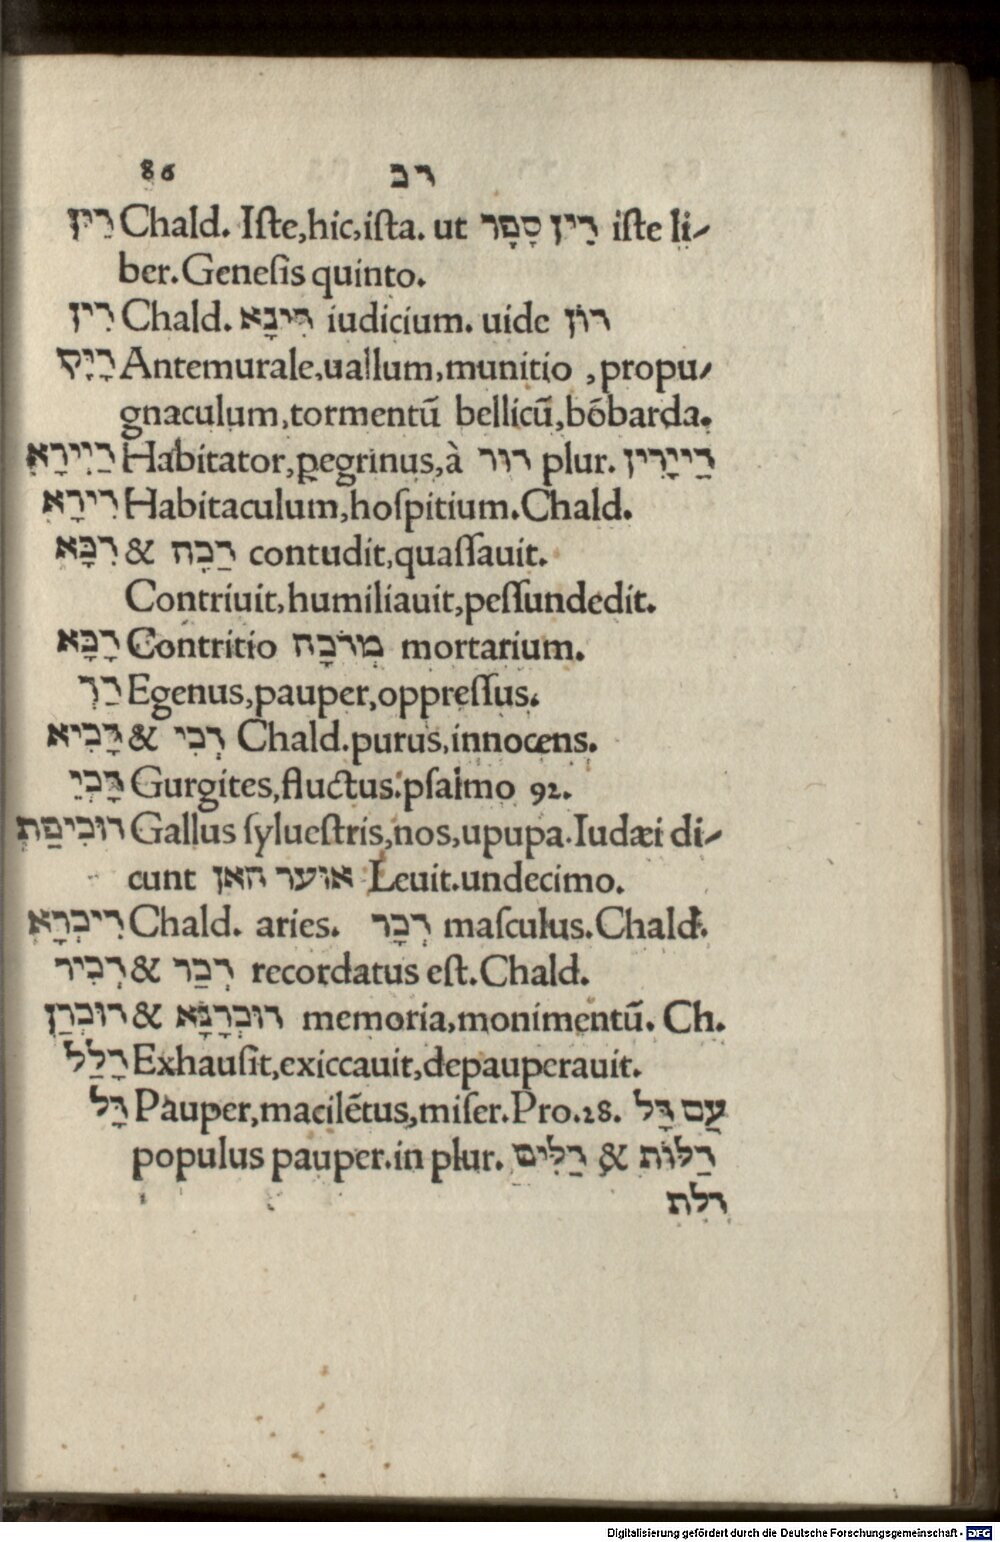 86 דב
דֵין Chald. Iſte, hic, iſta. ut דֵין סְפָר iſte li-
ber. Geneſis quinto.
דִין Chald. דִּינָא iudicium. uide דון
דָיֵק Antemurale, uallum, munitio, propu-
gnaculum, tormentū bellicū, bōbarda.
דַיירָא Habitator, ꝑegrinus, à דור plur. דַּיירִין
דִירָא Habitaculum, hoſpitium. Chald.
דִכָּא & דַכָה contudit, quaſſauit.
Contriuit, humiliauit, peſſundedit.
דָכָּא Contritio מְדֹכָה mortarium.
דַךְ Egenus, pauper, oppreſſus.
דָּכִיא & דְכִי Chald. purus, innocens.
דָּכְיֵ Gurgites, fluctus. pſalmo 92.
דוכִיפַת Gallus ſylueſtris, nos, upupa. Iudæi di-
cunt אוער האן Leuit. undecimo.
דִיכְרָא Chald. aries. דְכָר maſculus. Chald.
דְכִיר & דְכַר recordatus eſt. Chald.
דוכְרַן & דוכְרָנָא memoria, monimentū. Ch.
דָלַל Exhauſit, exiccauit, depauperauit.
דָּל Pauper, macilētus, miſer. Pro. 28. עַם דָּל
populus pauper. in plur. דַלִּים & דַלּוֹת
דלת
Digitalisierung gefördert durch die Deutsche Forschungsgemeinschaft - DFG